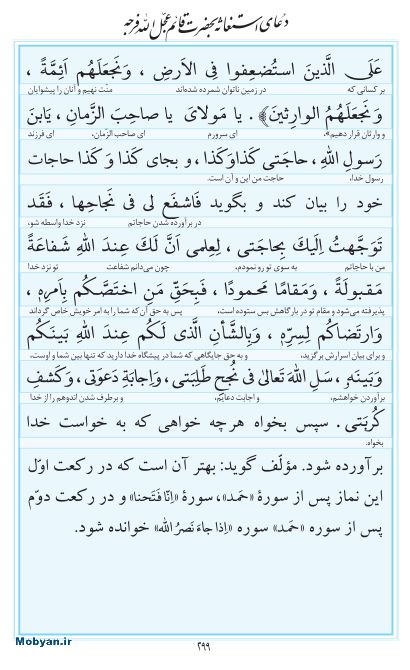 دعای استغاثه بحضرت قائم عجل الله فرجه
عَلَی الَّذینَ استُضعِفوا فِی الاَرضِ ، وَنَجعَلَهُم اَئِمَّةً ،
بر کسانی که در زمین ناتوان شمرده شده‌اند منّت نهیم و آنان را پیشوایان
وَنَجعَلَهُمُ الوارِثینَ﴾ . یا مَولایَ یا صاحِبَ الزَّمانِ ، یَابنَ
و وارثان قرار دهیم»، ای سرورم ای صاحب الزّمان، ای فرزند
رَسولِ اللهِ ، حاجَتی کَذا وَکَذا ، و بجای کَذا وَ کَذا حاجات
رسول خدا، حاجت من این و آن است.
خود را بیان کند و بگوید فَاشفَع لی فی نَجاحِها ، فَقَد
در برآورده شدن حاجاتم نزد خدا واسطه شو،
تَوَجَّهتُ اِلَیکَ بِحاجَتی ، لِعِلمی اَنَّ لَكَ عِندَ اللهِ شَفاعَةً
من با حاجاتم به سوی تو رو نمودم، چون می‌دانم شفاعت تو نزد خدا
مَقبولَةً ، وَمَقامًا مَحمودًا ، فَبِحَقِّ مَنِ اختَصَّکُم بِاَمرِهٖ ،
پذیرفته می‌شود و مقام تو در بارگاهش بس ستوده است، پس به حق آن که شما را به امر خویش خاص گرداند
وَارتَضاکُم لِسِرِّهٖ ، وَبِالشَّأنِ الَّذی لَکُم عِندَ اللهِ بَینَکُم
و برای بیان اسرارش برگزید، و به حق جایگاهی که شما در پیشگاه خدا دارید که تنها بین شما و اوست،
وَبَینَهٗ ، سَلِ اللهَ تَعالیٰ فی نُجحِ طَلِبَتی ، وَاِجابَةِ دَعوَتی ، وَکَشفِ
برآوردن خواهشم، و اجابت دعایم، و برطرف شدن اندوهم را از خدا
کُربَتی . سپس بخواه هرچه خواهی که به خواست خدا
بخواه.
برآورده شود. مؤلّف گوید: بهتر آن است که در رکعت اوّل
این نماز پس از سورهٔ «حَمد»، سورهٔ «اِنّا فَتَحنا» و در رکعت دوّم
پس از سوره «حَمد» سوره «اِذا جاءَ نَصرُ الله» خوانده شود.
۲۹۹
Mobyan.ir